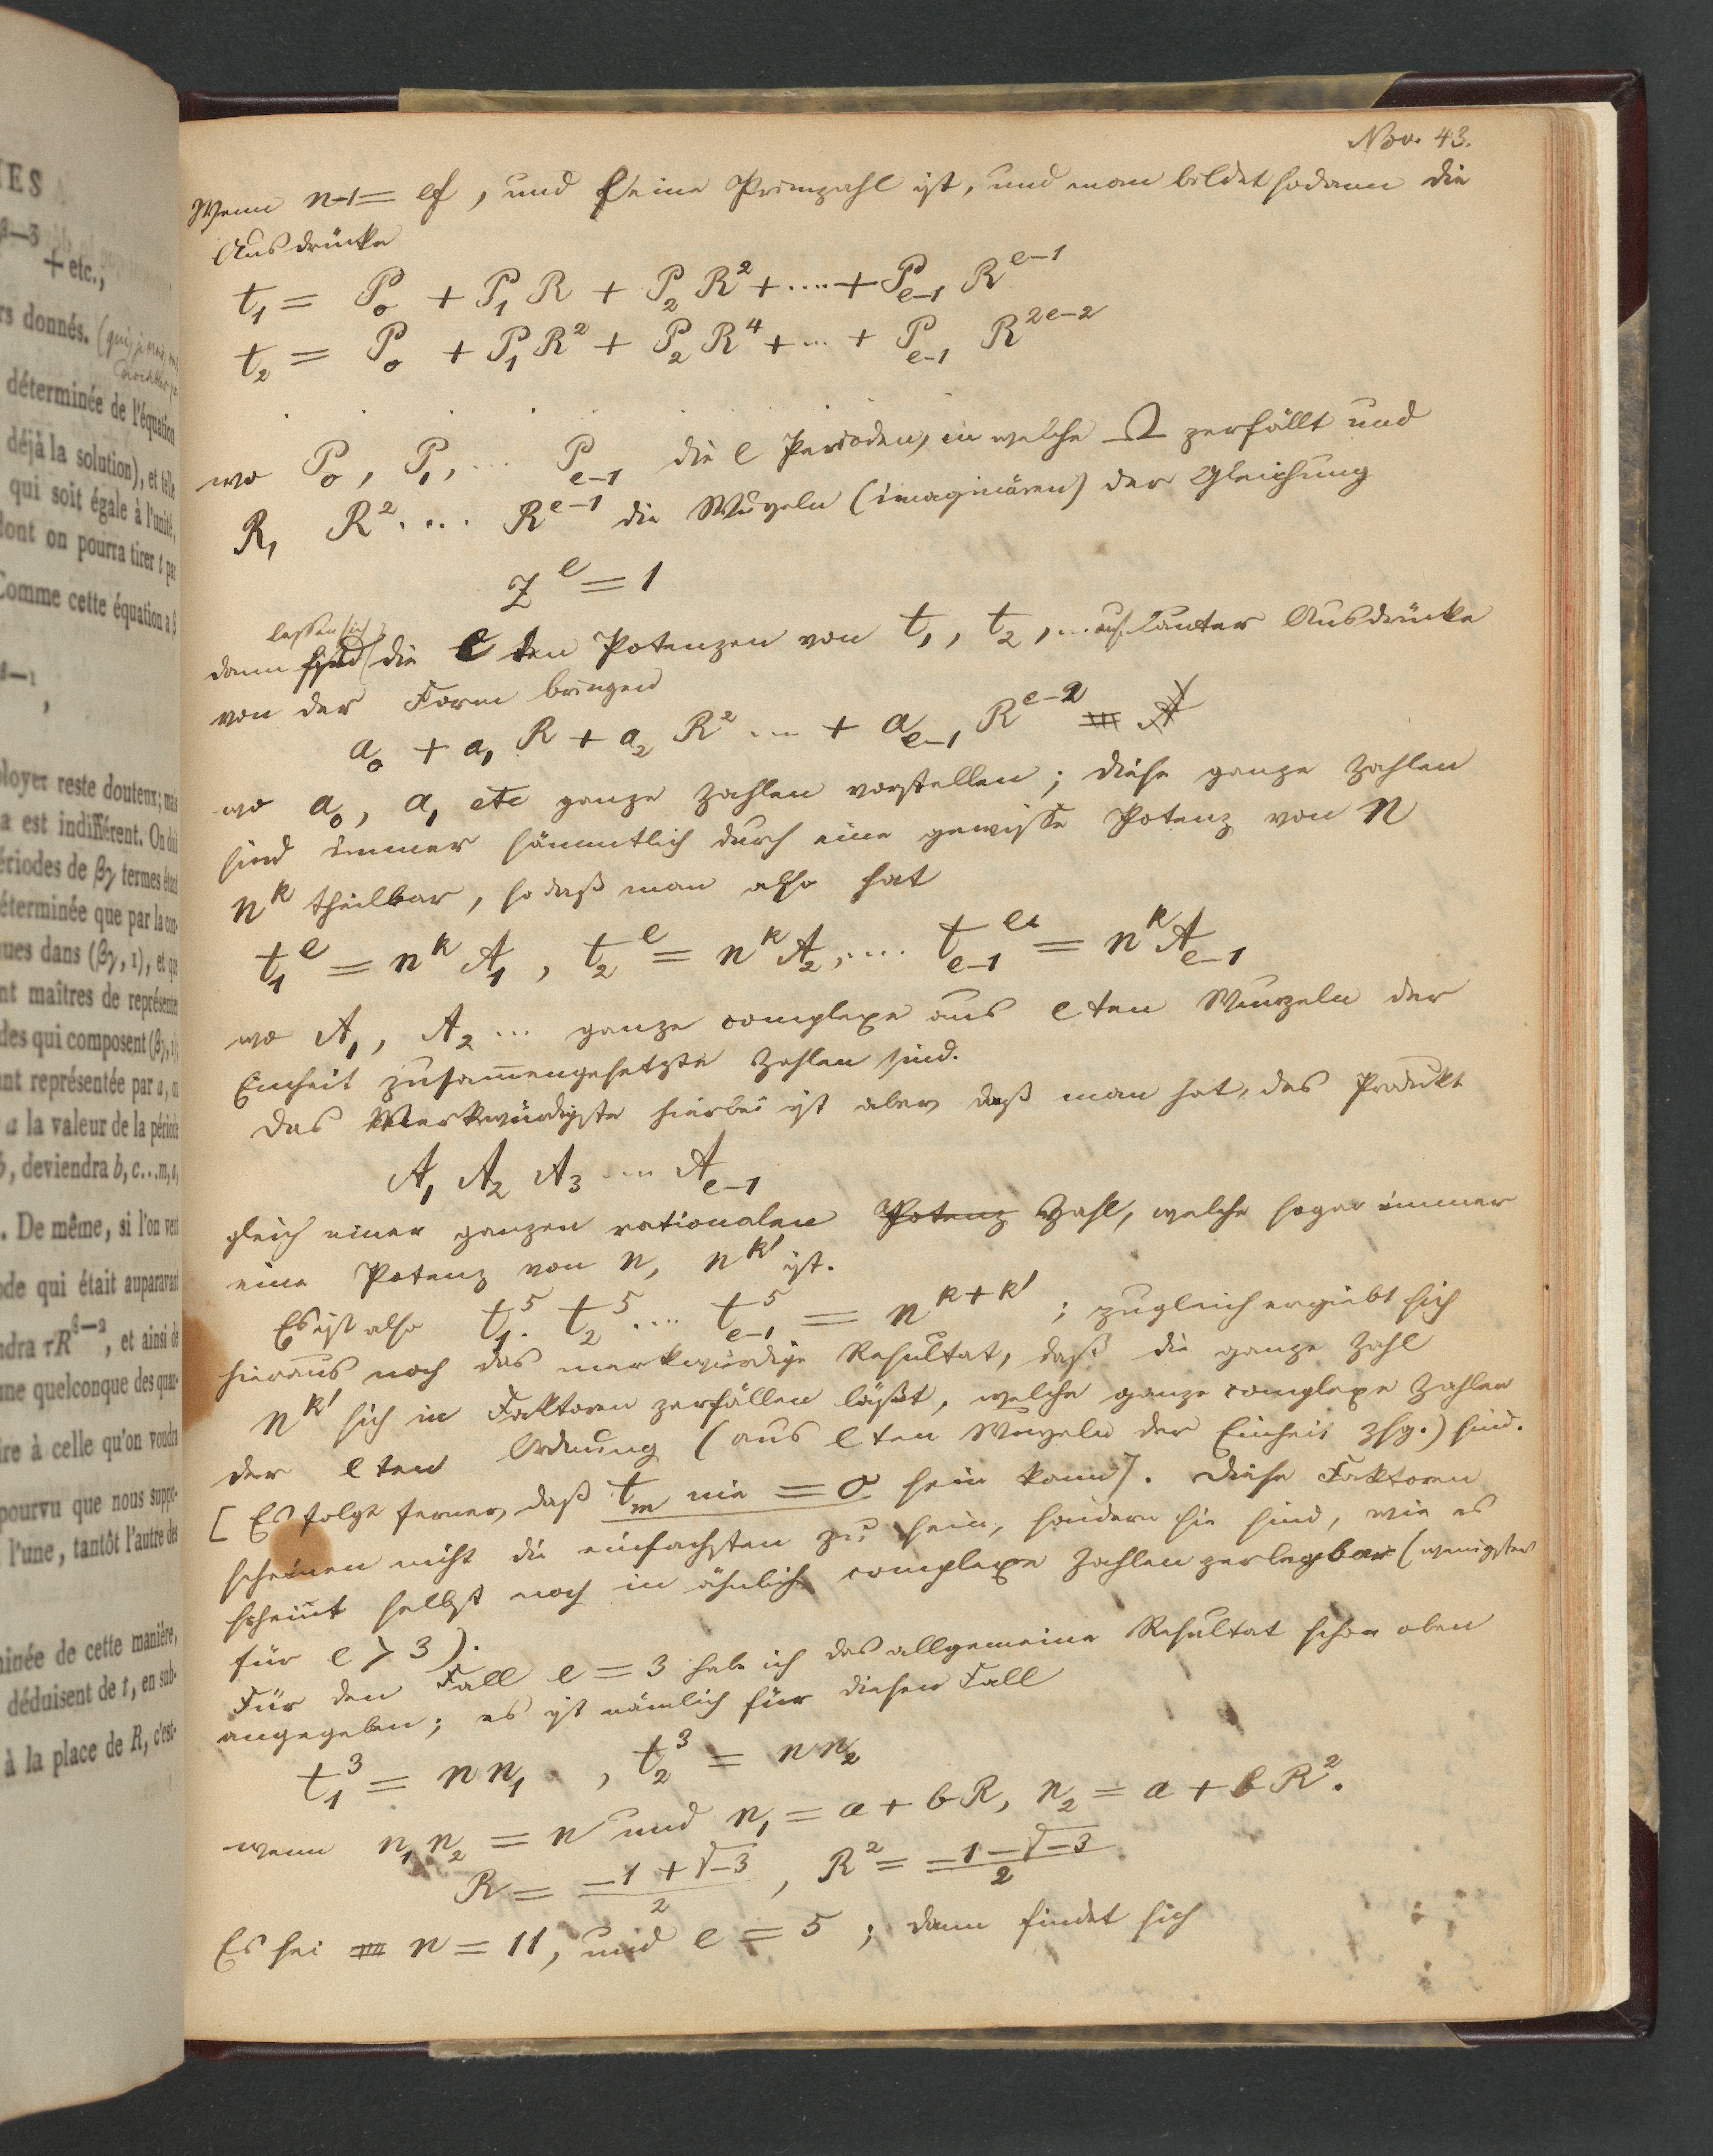 IES
3—3
+ etc.,
rs donnés. (
déterminée de l'équation
déjà la solution), et telle
qui soit égale à l'unité,
dont on pourra tirer t par
Comme cette équation a β
ployer reste douteux; mais
a est indifférent. On doit
ériodes de βγ termes étant
éterminée que par la con-
nues dans (βγ, 1), et que
nt maîtres de représenter
des qui composent (βγ, 1),
ant représentée par a, on
a la valeur de la période
b, deviendra b, c...m, a,
. De même, si l'on veut
ode qui était auparavant
ndra τR^{β—2}, et ainsi de
une quelconque des quan-
ire à celle qu'on voudra
pourvu que nous suppo-
l'une, tantôt l'autre des
minée de cette manière,
déduisent de t, en sub-
à la place de R, c'est-
Nov. 43.
Wenn n-1 = ef, und e eine Primzahl ist, und man bildet sodann die
Ausdrücke
t_1 = P_0 + P_1 R + P_2 R^2 + .... + P_{e-1} R^{e-1}
t_2 = P_0 + P_1 R^2 + P_2 R^4 + ... + P_{e-1} R^{2e-2}
. . . . .
wo P_0, P_1, ... P_{e-1} die e Perioden, in welche Ω zerfällt und
R, R^2 .... R^{e-1} die Wurzeln (imaginären) der Gleichung
Z^e = 1
lassen sich
dann sind die e ten Potenzen von t_1, t_2, ... auf lauter Ausdrücke
von der Form bringen
a_0 + a_1 R + a_2 R^2 ... + a_{e-1} R^{e-2}
wo a_0, a_1 etc ganze Zahlen vorstellen; diese ganze Zahlen
sind immer sämmtlich durch eine gewisse Potenz von n
n^k theilbar, so daß man also hat
t_1^e = n^k A_1, t_2^e = n^k A_2, .... t_{e-1}^e = n^k A_{e-1}
wo A_1, A_2 ... ganze complexe aus e ten Wurzeln der
Einheit zusamengesetzte Zahlen sind.
Das Merkwürdigste hierbei ist aber, daß man hat, das Produkt
A_1 A_2 A_3 .... A_{e-1}
gleich einer ganzen rationalen Potenz Zahl, welche sogar immer
eine Potenz von n, n^{k'} ist.
Es ist also t_1^5 . t_2^5 .... t_{e-1}^5 = n^{k+k'}; zugleich ergiebt sich
hieraus noch das merkwürdige Resultat, daß die ganze Zahl
n^{k'} sich in Faktoren zerfällen läßt, welche ganze complexe Zahlen
der e ten Ordnung (aus e ten Wurzeln der Einheit zsg.) sind.
[Es folgt ferner, daß t_m nie = 0 sein kann]. Diese Faktoren
scheinen nicht die einfachsten zu sein, sondern sie sind, wie es
scheint selbst noch in ähnliche complexe Zahlen zerlegbar (wenigstens
für e > 3).
Für den Fall e = 3 habe ich das allgemeine Resultat schon oben
angegeben; es ist nämlich für diesen Fall
t_1^3 = n n_1, t_2^3 = n n_2
wenn n_1 n_2 = n und n_1 = a + bR, n_2 = a + bR^2.
R = (-1 + √-3)/2, R^2 = (-1 - √-3)/2
Es sei n = 11, und e = 5; dann findet sich